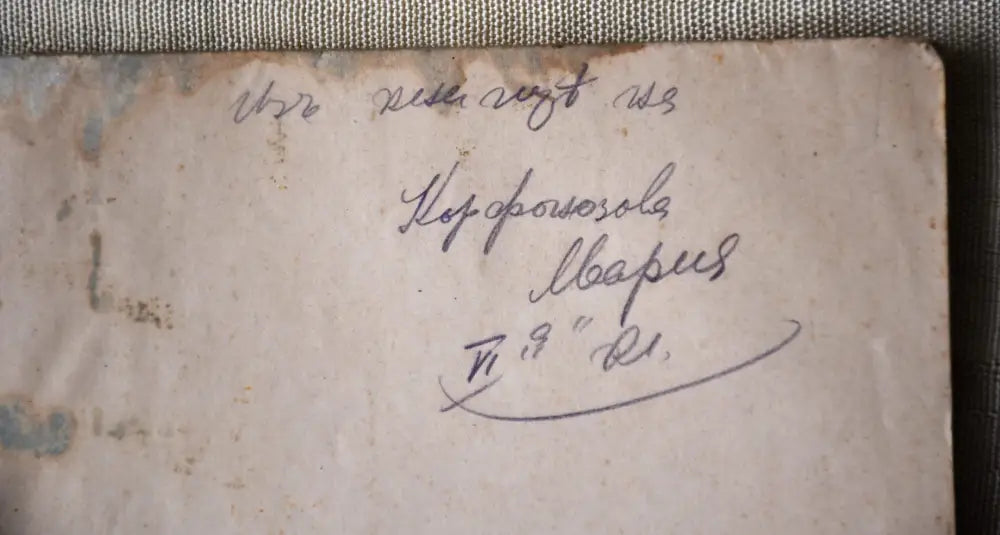 Изъ книгитѣ на
Корфонозова
Мария
VI кл.